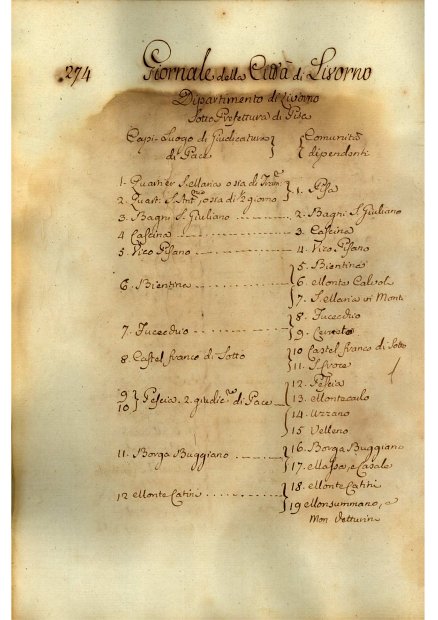 274 Giornale della Città di Livorno
Dipartimento di Livorno
Sotto Prefettura di Pisa
Capi-Luogo di Giudicatura } { Comunità
di Pace } { dipendenti
1. Quartier S. Maria o sia di Tram.na } 1. Pisa
2. Quart. S. Ant.o, o sia di ½ giorno
3. Bagni S. Giuliano ........ 2. Bagni S. Giuliano
4 Cascina ........ 3. Cascina
5. Vico Pisano ........ 4. Vico Pisano
{ 5. Bientina
6. Bientina ........ { 6. Monte Calvol
{ 7. S. Maria in Mont.
{ 8. Fucecchio
7. Fucecchio ........ { 9. Cerreto
8. Castel franco di Sotto { 10 Castel franco di Sotto
{ 11. S. Croce
{ 12. Pescia
9 } Pescia. 2. giudic.re di Pace { 13. Montecarlo
10 } { 14. Uzzano
{ 15 Velleno
11. Borgo Buggiano ........ { 16. Borgo Buggiano
{ 17. Massa, e Cozzile
12 Monte Catini ........ { 18. Monte Catini
{ 19 Monsummano, e
Mon Vetturin